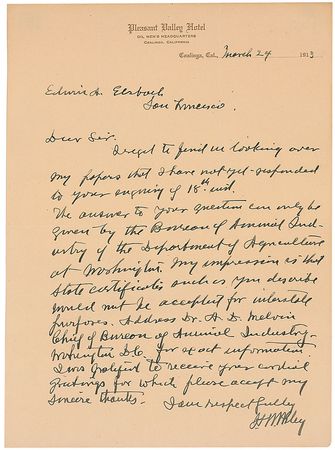 Pleasant Valley Hotel
OIL MEN'S HEADQUARTERS
COALINGA, CALIFORNIA
Coalinga, Cal., March 24 1913
Edwin A.
San Francisco.
Dear Sir.
I regret to find in looking over
my papers that I have not yet responded
to your enquiry of 18th inst.
The answer to your question can only be
given by the Bureau of Animal Ind-
ustry of the Department of Agriculture
at Washington. My impression is that
State certificates such as you describe
would not be accepted for interstate
purposes. Address Dr. A. D. Melvin
Chief of Bureau of Animal Industry-
Washington D.C. for exact information.
I was gratified to receive your cordial
greetings for which please accept my
sincere thanks.
I am respectfully
H W Wiley